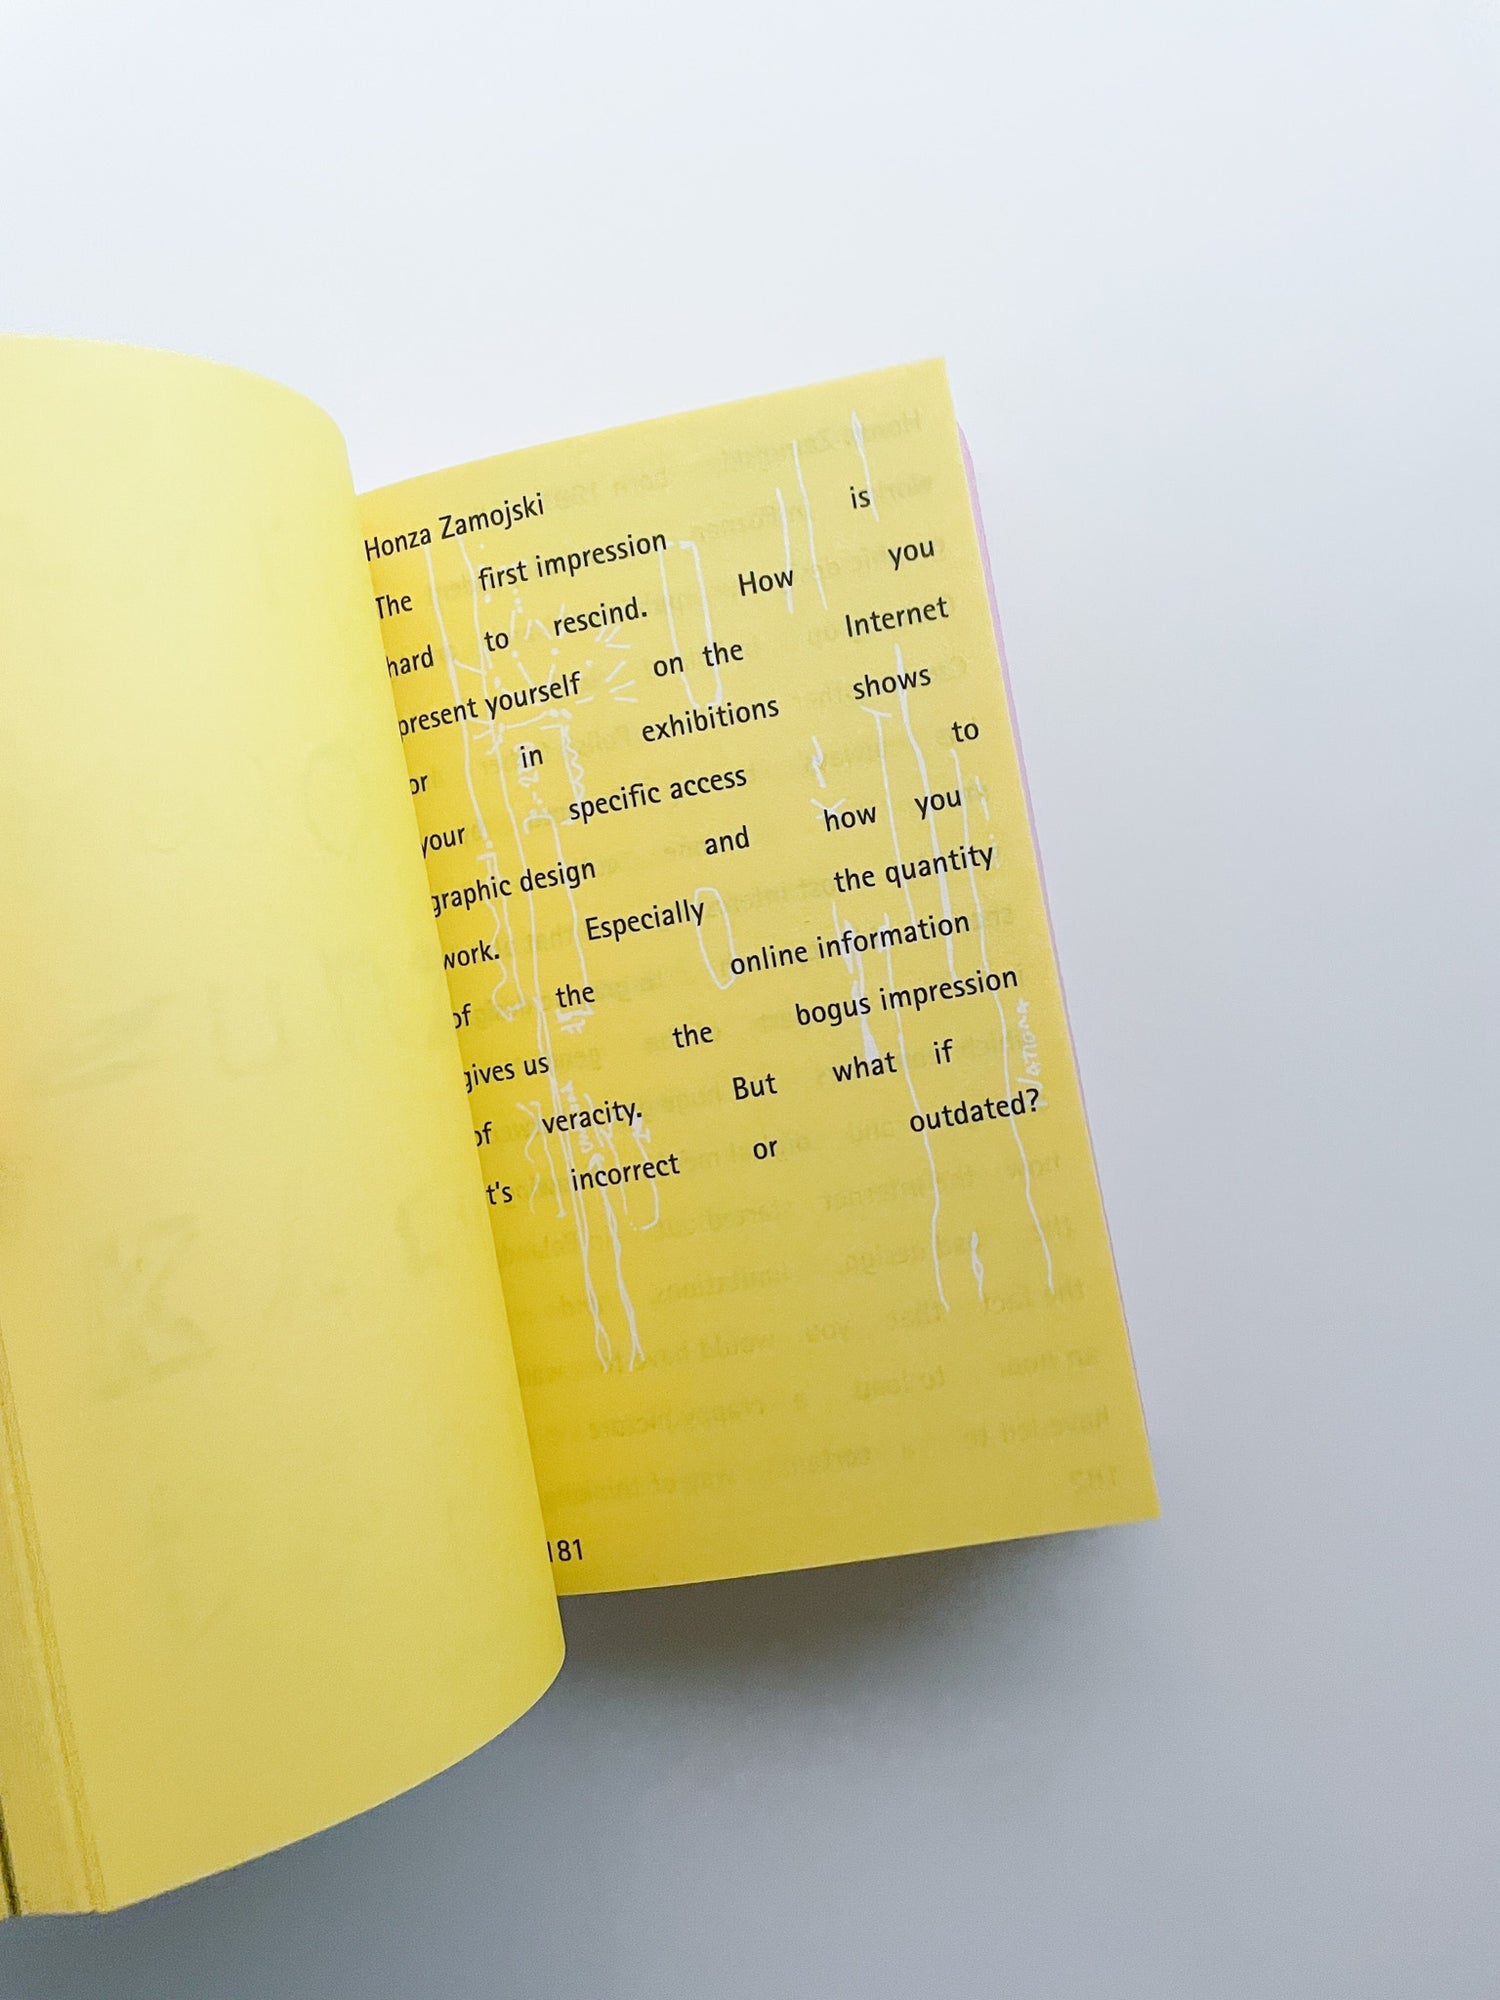 Honza Zamojski
The first impression is
hard to rescind. How you
present yourself on the Internet
or in exhibitions shows
your specific access to
graphic design and how you
work. Especially the quantity
of the online information
gives us the bogus impression
of veracity. But what if
t's incorrect or outdated?
181